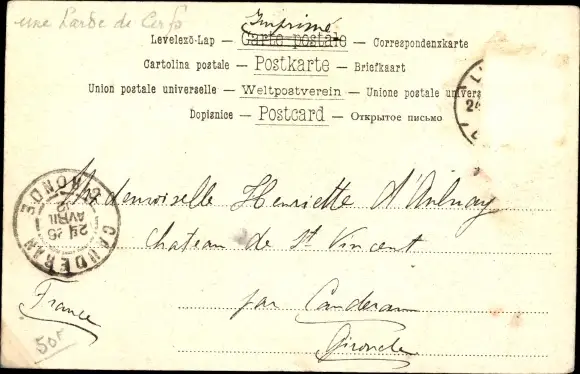 une Harde de Cerfs
Imprimé
Levelező-Lap — Carte postale — Correspondenzkarte
Cartolina postale — Postkarte — Briefkaart
Union postale universelle — Weltpostverein — Unione postale univers
Dopisnice — Postcard — Открытое письмо
24
Mademoiselle Henriette d'Aulnay
Chateau de St Vincent
par Canderan
Gironde
France
50F
CAUDERAN
GIRONDE
24
AVRIL